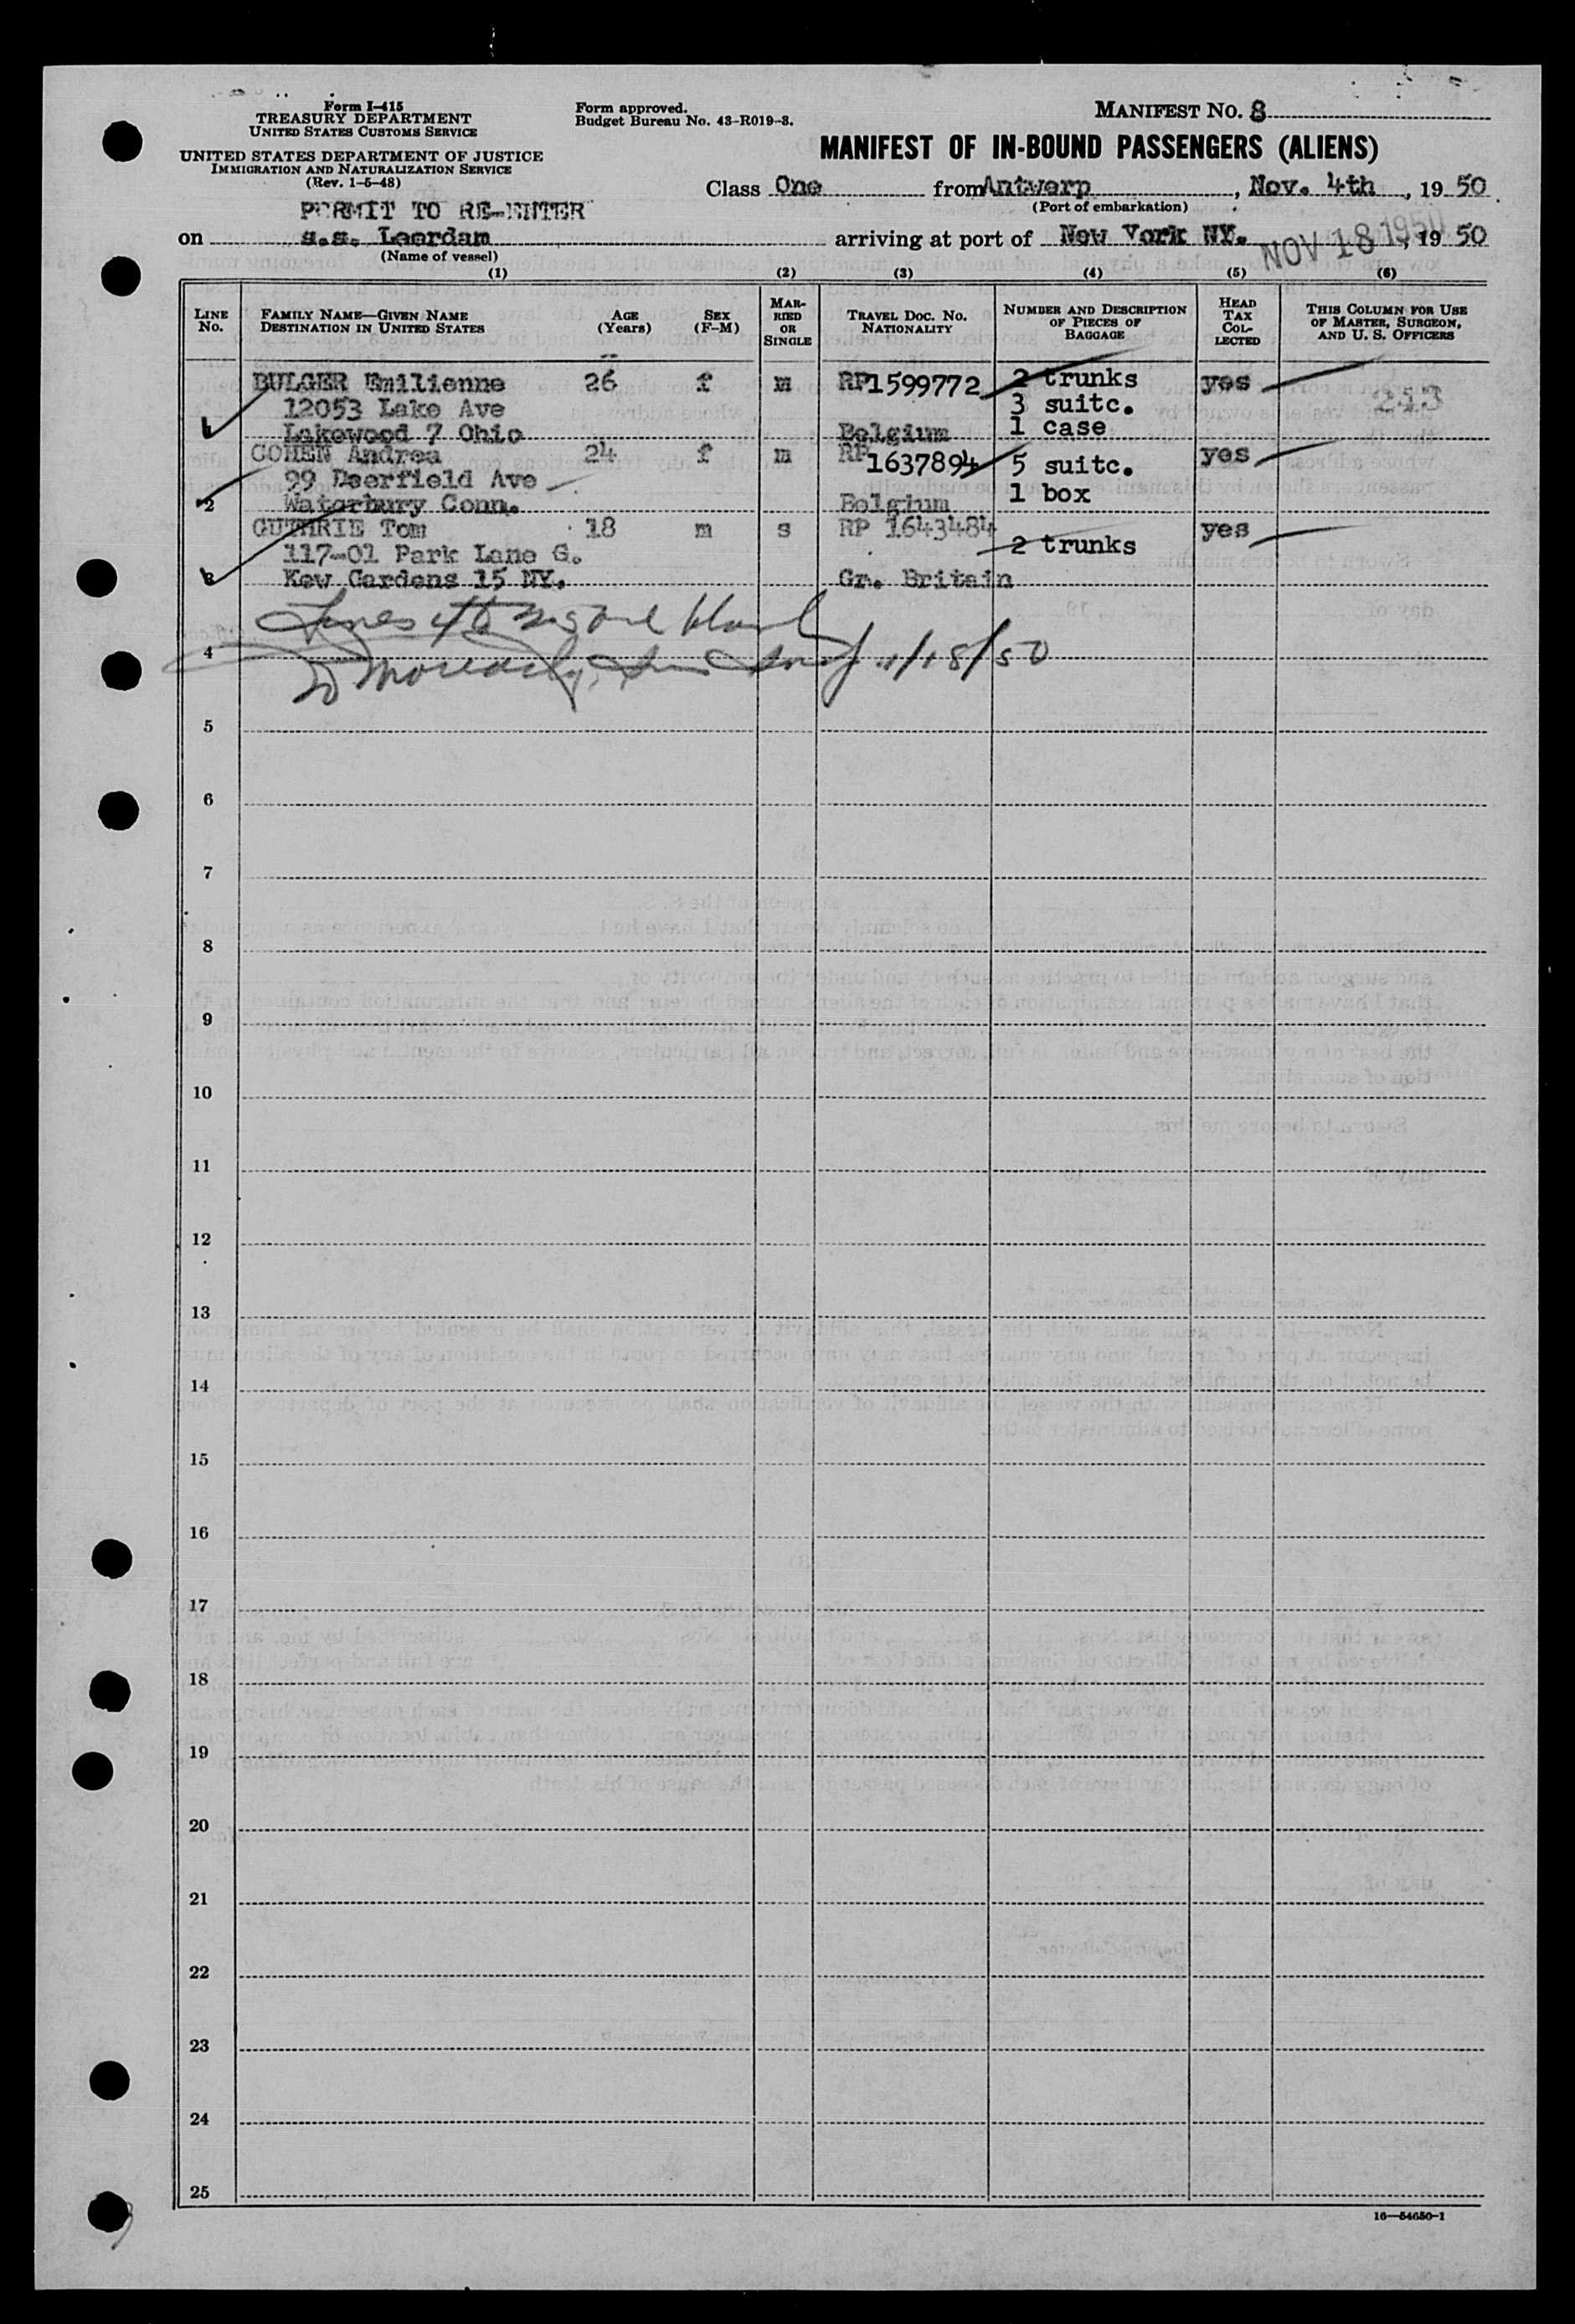 Form I-415
TREASURY DEPARTMENT
UNITED STATES CUSTOMS SERVICE
UNITED STATES DEPARTMENT OF JUSTICE
IMMIGRATION AND NATURALIZATION SERVICE
(Rev. 1-5-48)
Form approved.
Budget Bureau No. 43-R019-3.
MANIFEST No. 8
MANIFEST OF IN-BOUND PASSENGERS (ALIENS)
Class One from Antwerp, Nov. 4th, 19 50
(Port of embarkation)
PERMIT TO RE-ENTER
on s.s. Leerdam arriving at port of New York NY. NOV 18 1950, 19 50
(Name of vessel)
(1) (2) (3) (4) (5) (6)
LINE No.
FAMILY NAME—GIVEN NAME DESTINATION IN UNITED STATES
AGE (Years)
SEX (F-M)
MARRIED OR SINGLE
TRAVEL DOC. No. NATIONALITY
NUMBER AND DESCRIPTION OF PIECES OF BAGGAGE
HEAD TAX COLLECTED
THIS COLUMN FOR USE OF MASTER, SURGEON, AND U. S. OFFICERS
BULGER Emilienne 26 f m RP1599772 2 trunks yes
12053 Lake Ave 3 suitc. 243
1 Lakewood 7 Ohio Belgium 1 case
COHEN Andrea 24 f m RP 1637894 5 suitc. yes
99 Deerfield Ave 1 box
2 Waterbury Conn. Belgium
GUTHRIE Tom 18 m s RP 1643484 yes
117-01 Park Lane S. 2 trunks
3 Kew Gardens 15 NY. Gr. Britain
Lines 4 to
4 11/18/50
5
6
7
8
9
10
11
12
13
14
15
16
17
18
19
20
21
22
23
24
25
16—54650-1